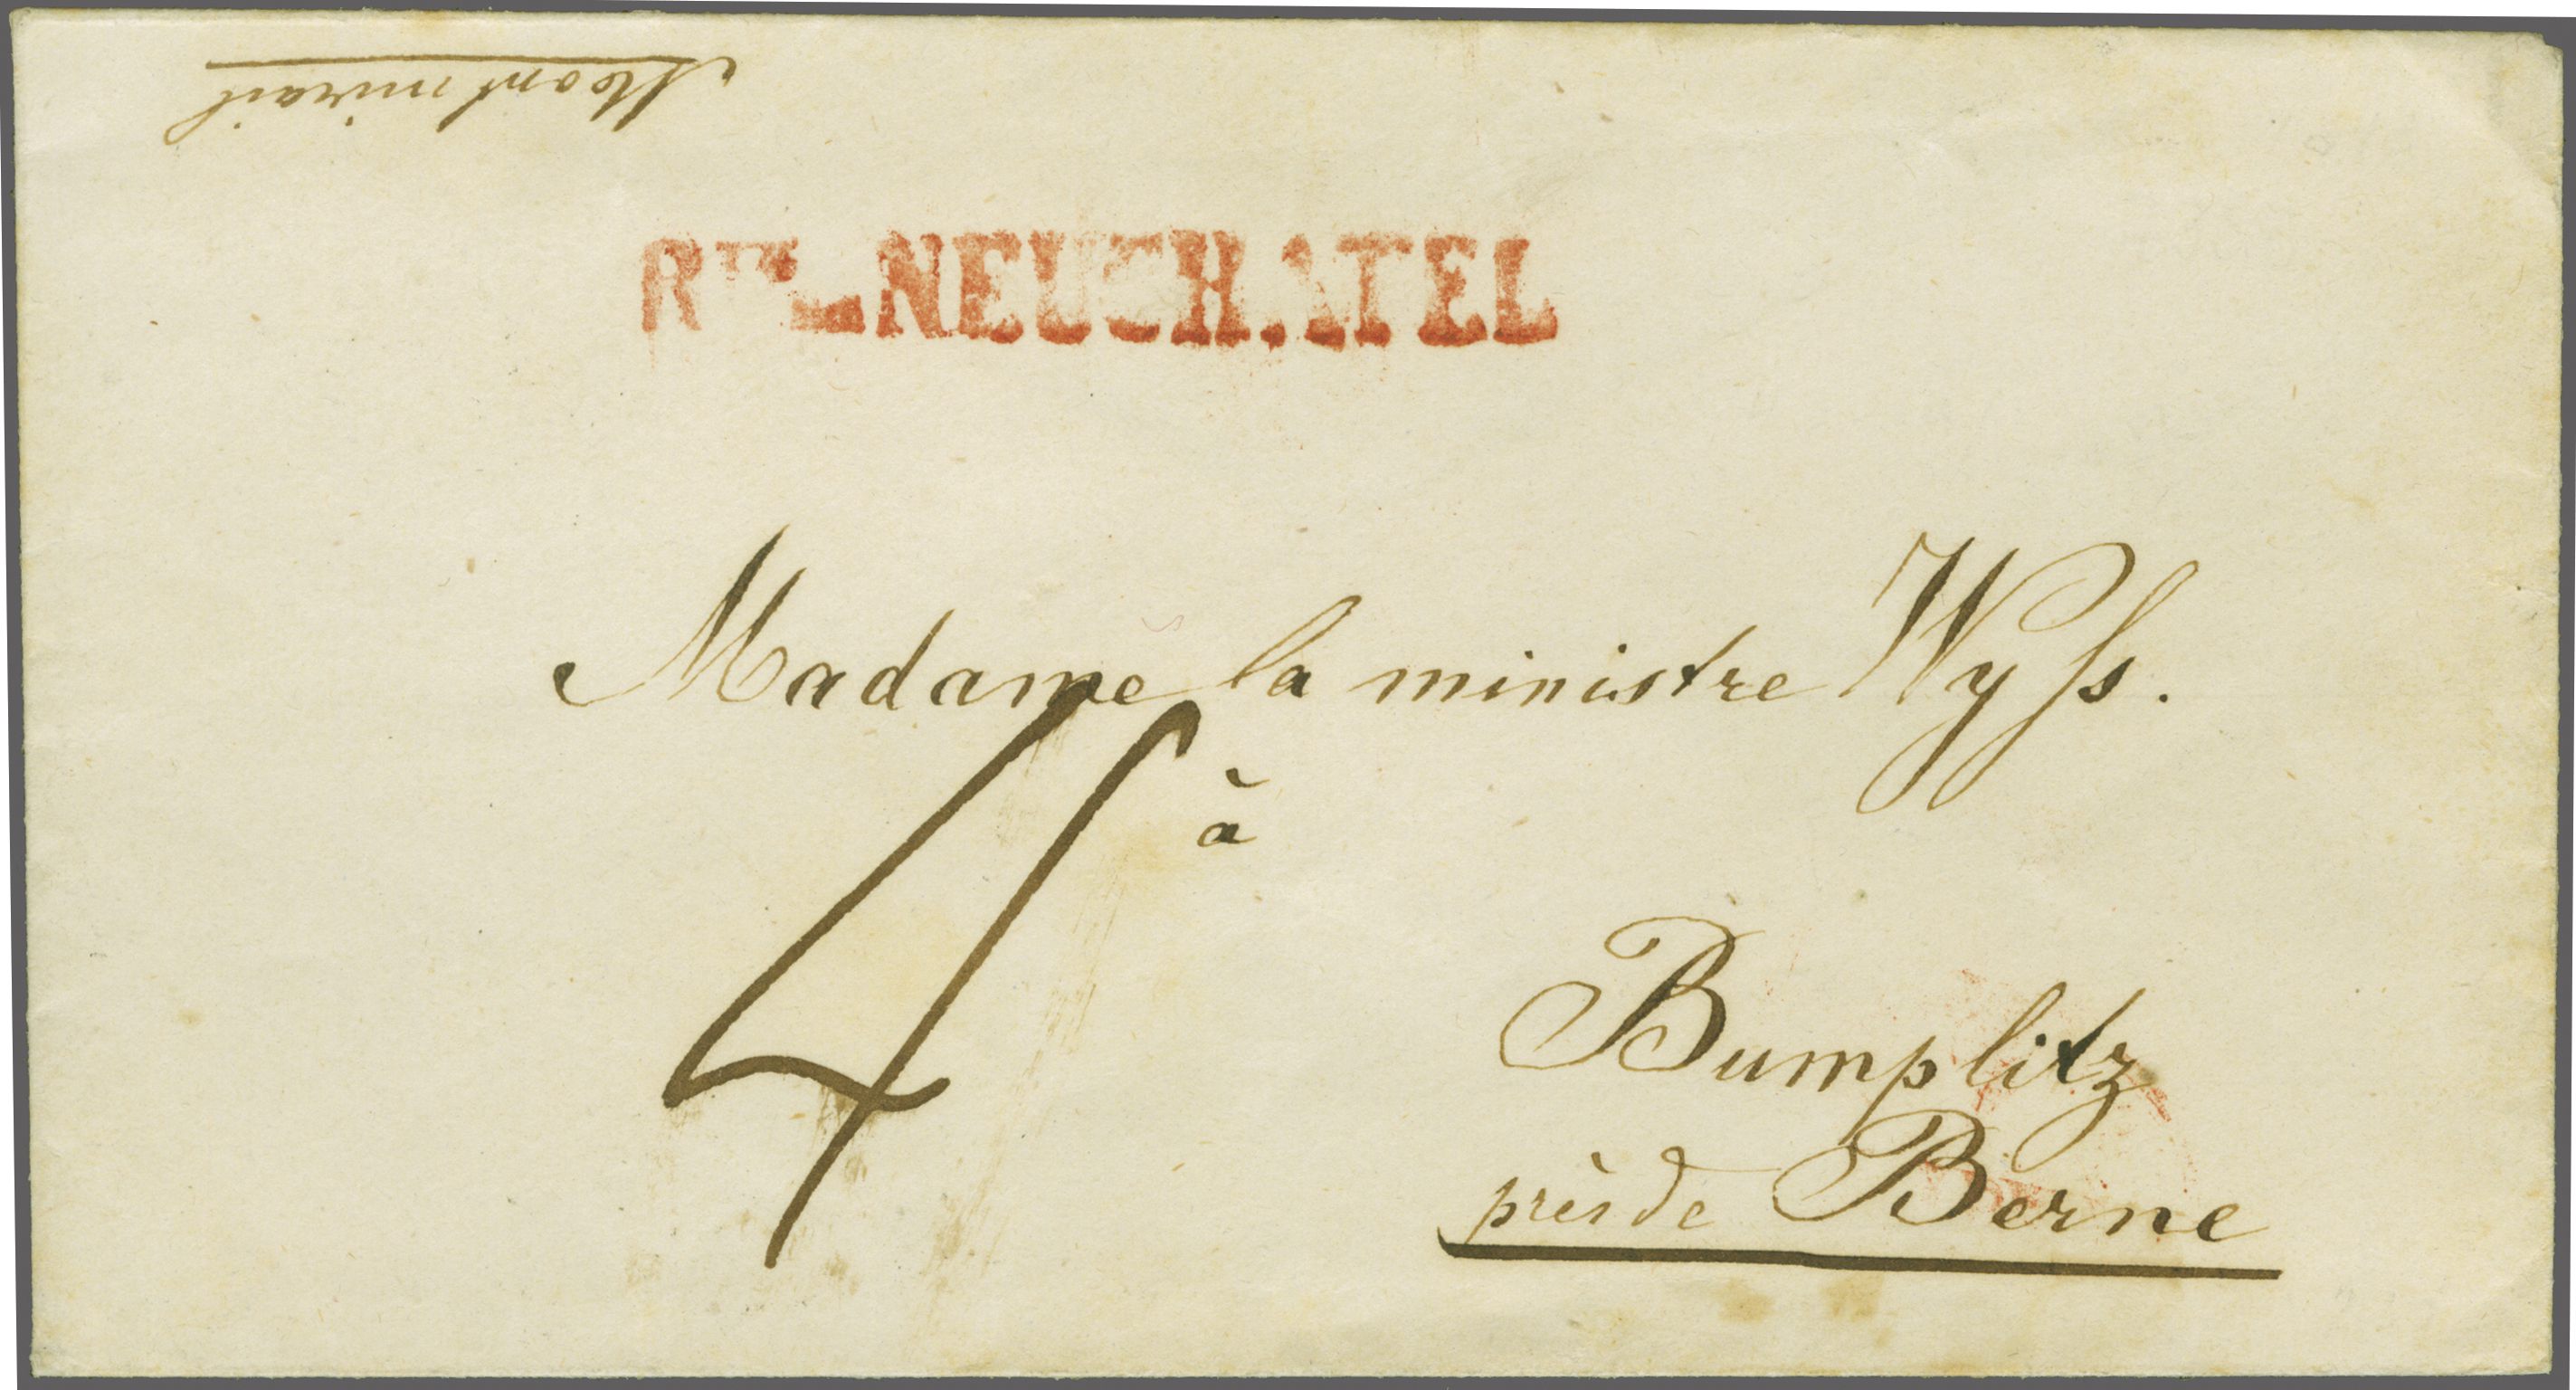 Montmirail
NEUCHATEL
Madame la ministre Wyſs.
4
à
Bumplitz
près de Berne